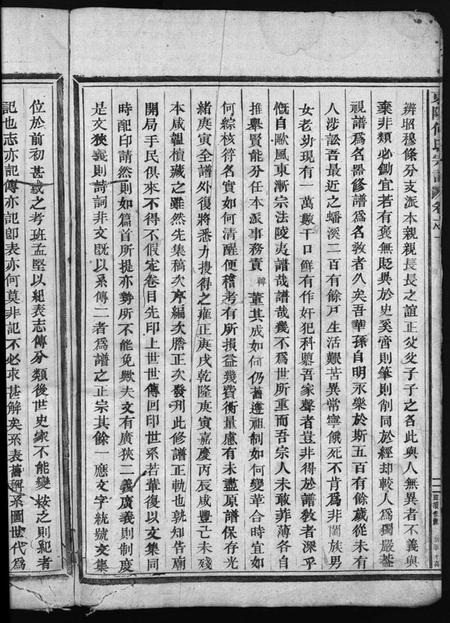 辨昭穆條分支派本親親長長之誼正父父子子之名此與人無異者不義與
棄非類必鋤宜若有褒無貶與於史奚啻則筆則削同於經却較人爲獨嚴蓋
視譜爲名器修譜爲名敎者久矣吾華孫自明永樂於斯五百有餘歲從未有
人涉訟吾最近之蟠溪二百有餘戸生活艱苦異常寧餓死不肯爲非闔族男
女老幼現有一萬數千口鮮有作奸犯科壞吾家聲者豈非得於譜敎者深乎
慨自歐風東漸宗法陵夷譜哉譜哉幾不爲世所重而吾宗人未敢菲薄各自
推舉賢能分任本派事務責 董其成如何仍舊遵祖制如何變革合時宜如
何綜核符名實如何清醒便稽考有所損益幾費衡量慮有未盡原譜保存光
緒庚寅全譜外復將悉力搜得之雍正庚戌乾隆庚寅嘉慶丙辰咸豐己未殘
本咸韞櫝藏之雖然先集稿次序編次謄正次發刋此修譜正軌也孰知告竣
開局手民俱來不得不假定卷目先印上世世傳回印世系若輩復以文集同
時配印請然則如篇首所提亦勢所不能免歟夫文有廣狹二義廣義則制度
是文狹義則詩詞非文既以系傳二者爲譜之正宗其餘一應文字統號文集
位於前初甚疑之考班孟堅以紀表志傳分類後世史家不能變按之則紀者
記也志亦記傳亦記卽表亦何莫非記不必求甚解矣系表舊稱系圖世代爲
何氏宗譜 卷之一